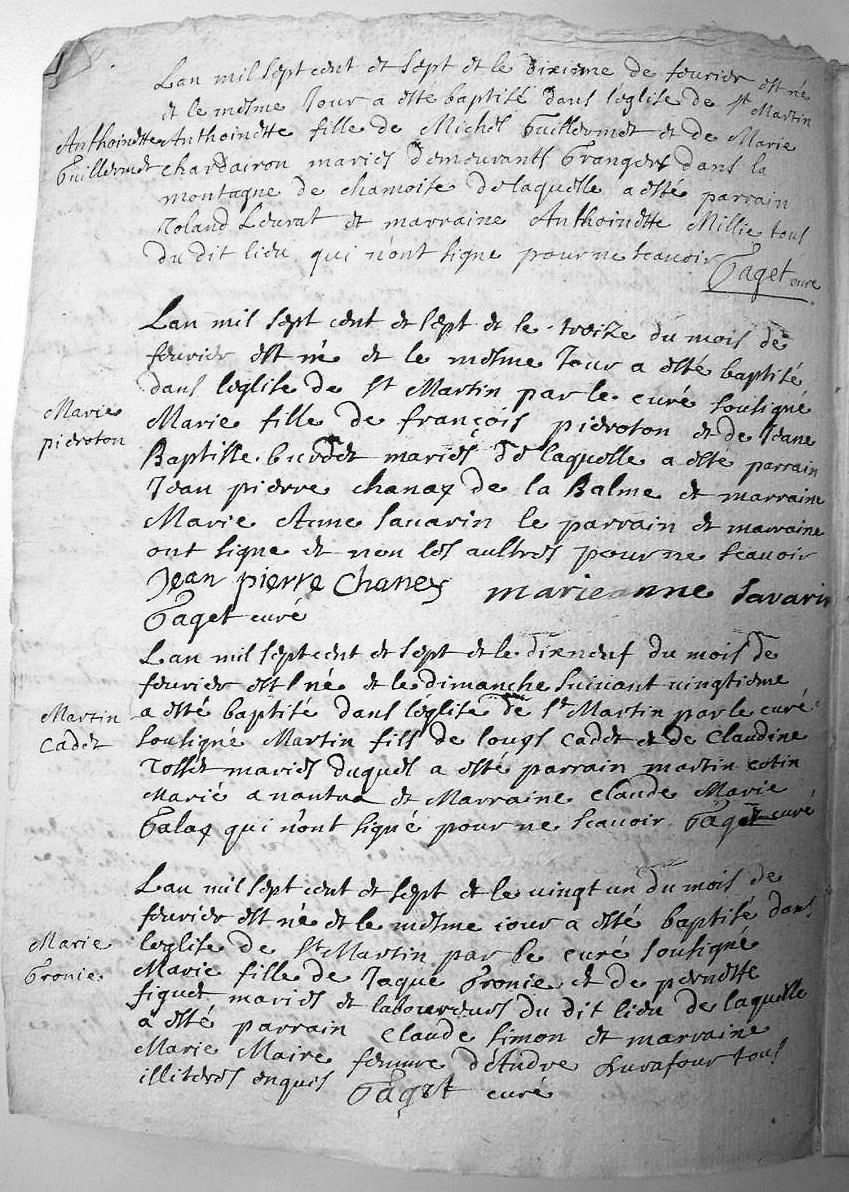 Lan mil sept cent et sept et le dixieme de fevrier est né
et le mesme Jour a esté baptisé dans leglise de st Martin
Anthoinette Guillermet
Anthoinette fille de Michel Guillermet et de Marie
chardairon mariés demeurants Grangers dans la
montagne de chamoise de laquelle a esté parrain
Roland Leurat et marraine Anthoinette Millie tous
du dit lieu qui n'ont signe pour ne scavoir
Gaget curé
Lan mil sept cent et sept et le treize du mois de
fevrier est né et le mesme Jour a esté baptisé
dans leglise de St Martin par le curé soussigné
Marie pieroton
Marie fille de françois pieroton et de Jeane
Baptiste burdet mariés de laquelle a esté parrain
Jean pierre chanay de la Balme et marraine
Marie Anne Savarin le parrain et marraine
ont signe et non les aultres pour ne scavoir
Jean pierre Chaney marieanne Savarin
Gaget curé
Lan mil sept cent et sept et le dixneuf du mois de
fevrier est né et le dimanche suivant vingtieme
Martin Cadet
a esté baptisé dans leglise de St Martin par le curé
soussigné Martin fils de louys Cadet et de Claudine
Rosset mariés duquel a esté parrain martin cotin
Marié a nantua et Marraine Claude Marie
Galay qui n'ont signé pour ne scavoir Gaget curé
Lan mil sept cent et sept et le vingt un du mois de
fevrier est né et le mesme iour a esté baptisé dans
Marie Gronie
leglise de St Martin par le curé soussigné
Marie fille de Jaque Gronie et de pernette
figuet mariés et laboureurs du dit lieu de laquelle
a esté parrain Claude Simon et marraine
Marie Maire femme d'Andre tous
illiterés enquis Gaget curé